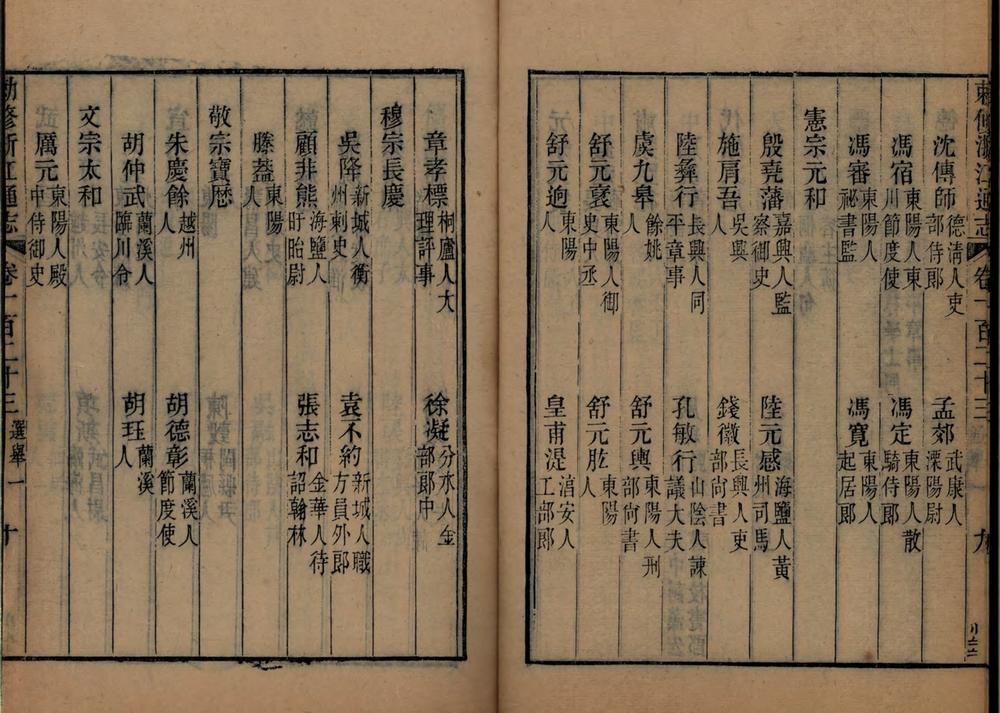 敕修浙江通志 卷一百二十三 九
沈傳師 德淸人吏部侍郎 孟郊 武康人溧陽尉
馮宿 東陽人東川節度使 馮定 東陽人散騎侍郎
馮審 東陽人秘書監 馮寬 東陽人起居郎
憲宗元和
殷堯藩 嘉興人監察御史 陸元感 海鹽人黃州司馬
施肩吾 吳興人 錢徽 長興人吏部尙書
陸彝行 長興人同平章事 孔敏行 山陰人諫議大夫
虞九皋 餘姚人 舒元輿 東陽人刑部尙書
舒元褒 東陽人御史中丞 舒元肱 東陽人
舒元迥 東陽人 皇甫湜 淯安人工部郎
章孝標 桐廬人大理評事 徐凝 分水人金部郎中
穆宗長慶
吳降 新城人衡州刺史 袁不約 新城人職方員外郎
顧非熊 海鹽人盱眙尉 張志和 金華人待詔翰林
滕蓋 東陽人
敬宗寶歷
朱慶餘 越州人 胡德彰 蘭溪人節度使
胡仲武 蘭溪人臨川令 胡珏 蘭溪人
文宗太和
厲元 東陽人殿中侍御史
勅修浙江通志 卷一百二十三 選舉一 十